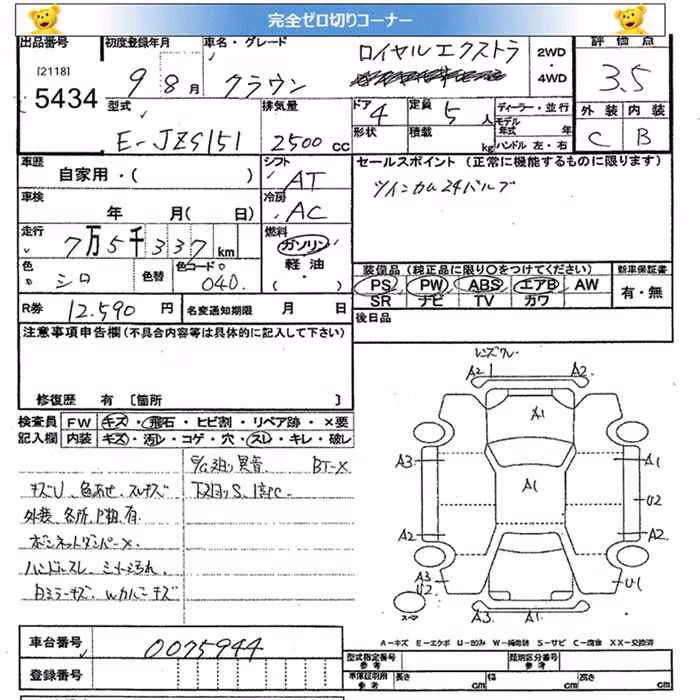 完全ゼロ切りコーナー
出品番号 初度登録年月 車名・グレード ロイヤルエクストラ 2WD・4WD 評価点
[2118] 5434 9 8月 クラウン 3.5
型式 排気量 ドア 4 定員 5人 ディーラー・並行 外装 内装
E-JZS151 2500cc 形状 積載 kg モデル年式 年 ハンドル 左・右 C B
車歴 自家用・( ) シフト AT セールスポイント (正常に機能するものに限ります)
車検 年 月( 日) 冷房 AC ツインカム24バルブ
走行 7万5千337km 燃料 ガソリン 軽油 ・( )
色 シロ 色替 色コードNO 040 装備品 (純正品に限り○をつけてください) 新車保証書
PS PW ABS エアB AW 有・無
SR ナビ TV カワ
R券 12.590円 名変通知期限 月 日 後日品
注意事項申告欄 (不具合内容等は具体的に記入して下さい)
修復歴 有 [箇所 ]
検査員記入欄 FW キズ・飛石・ヒビ割・リペア跡・×要
内装 キズ・汚レ・コゲ・穴・スレ・キレ・破レ
異音 BT-X
キズU、色あせ、スレキズ
外装 各所、P独、有
ボンネットダンパーX
ハンドルスレ、シート汚れ
ミラーキズ、Wカバーキズ
レンズワレ
A2 1 A2
A1
A3 A1
A1
U2
A2 A2
A3 U2 U1
スペア
A3 A1
A-キズ E-エクボ U-凹み W-補修跡 S-サビ C-腐食 XX-交換済
車台番号 0075944
登録番号
型式指定番号 参考 類別区分番号 参考
車庫証明用 参考 長さ cm 幅 cm 高さ cm